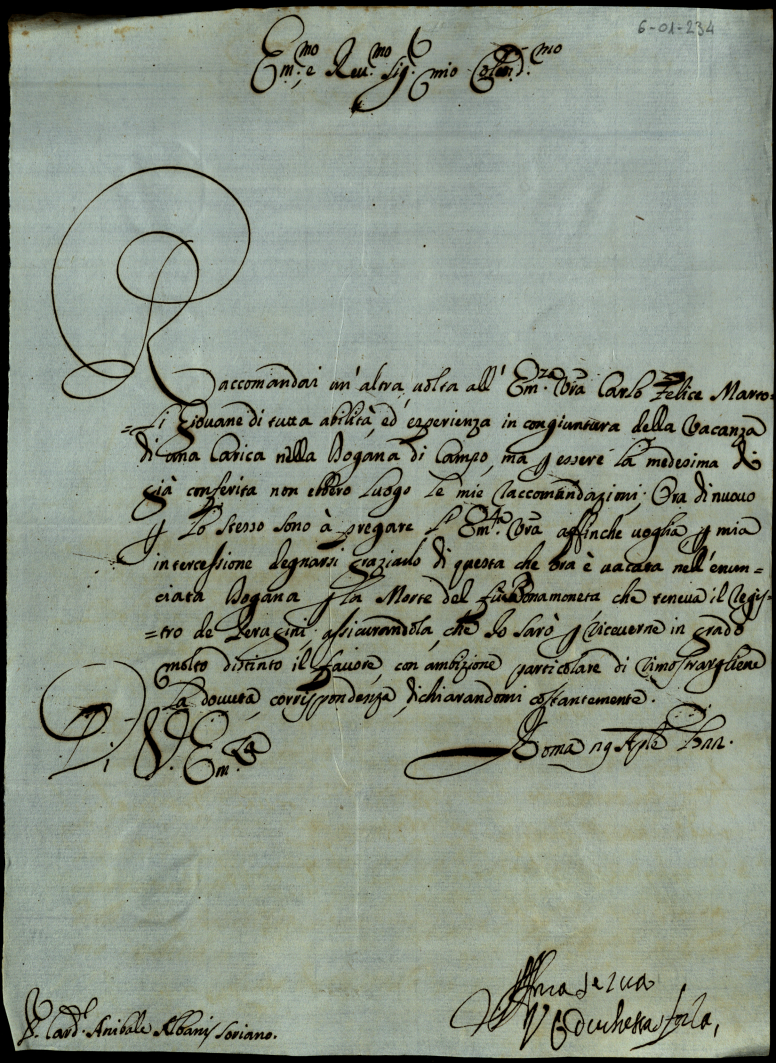 6-01-234
Em.mo e Reu.mo Sig. mio Colend.mo
Raccomandai un'altra uolta all' Em.za Vra Carlo Felice Marto=
=li Giouane di tutta abilità, ed' esperienza in congiuntura della Vacanza
di una Carica nella Dogana di Campo, ma p essere la medesima di
già conferita non ebbero luogo le mie raccomandazioni; Ora di nuouo
p lo stesso sono à pregare l' Em.za Vra affinche uoglia p mia
intercessione degnarsi graziarlo di questa che ora è uacata nell'enun=
ciata Dogana p la Morte del fù Bonamoneta che teneua il Regis=
=tro de, assicurandola, che Io sarò p riceuerne in grado
molto distinto il fauore, con ambizione particolare di rimostrargliene
la douuta corrispondenza, dichiarandomi costantemente.
Di V. Em.za
Roma 19 Aple
Aff.ma serua
V C duchessa
S. Card.l Anibale Albani Soriano.